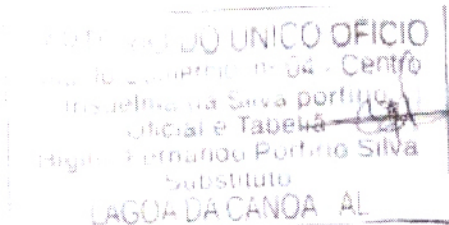 DO UNICO OFICIO
nº 04 - Centro
da Silva portirio
Oficial e Tabeliã
Fernando Portirio Silva
Substituto
LAGOA DA CANOA AL